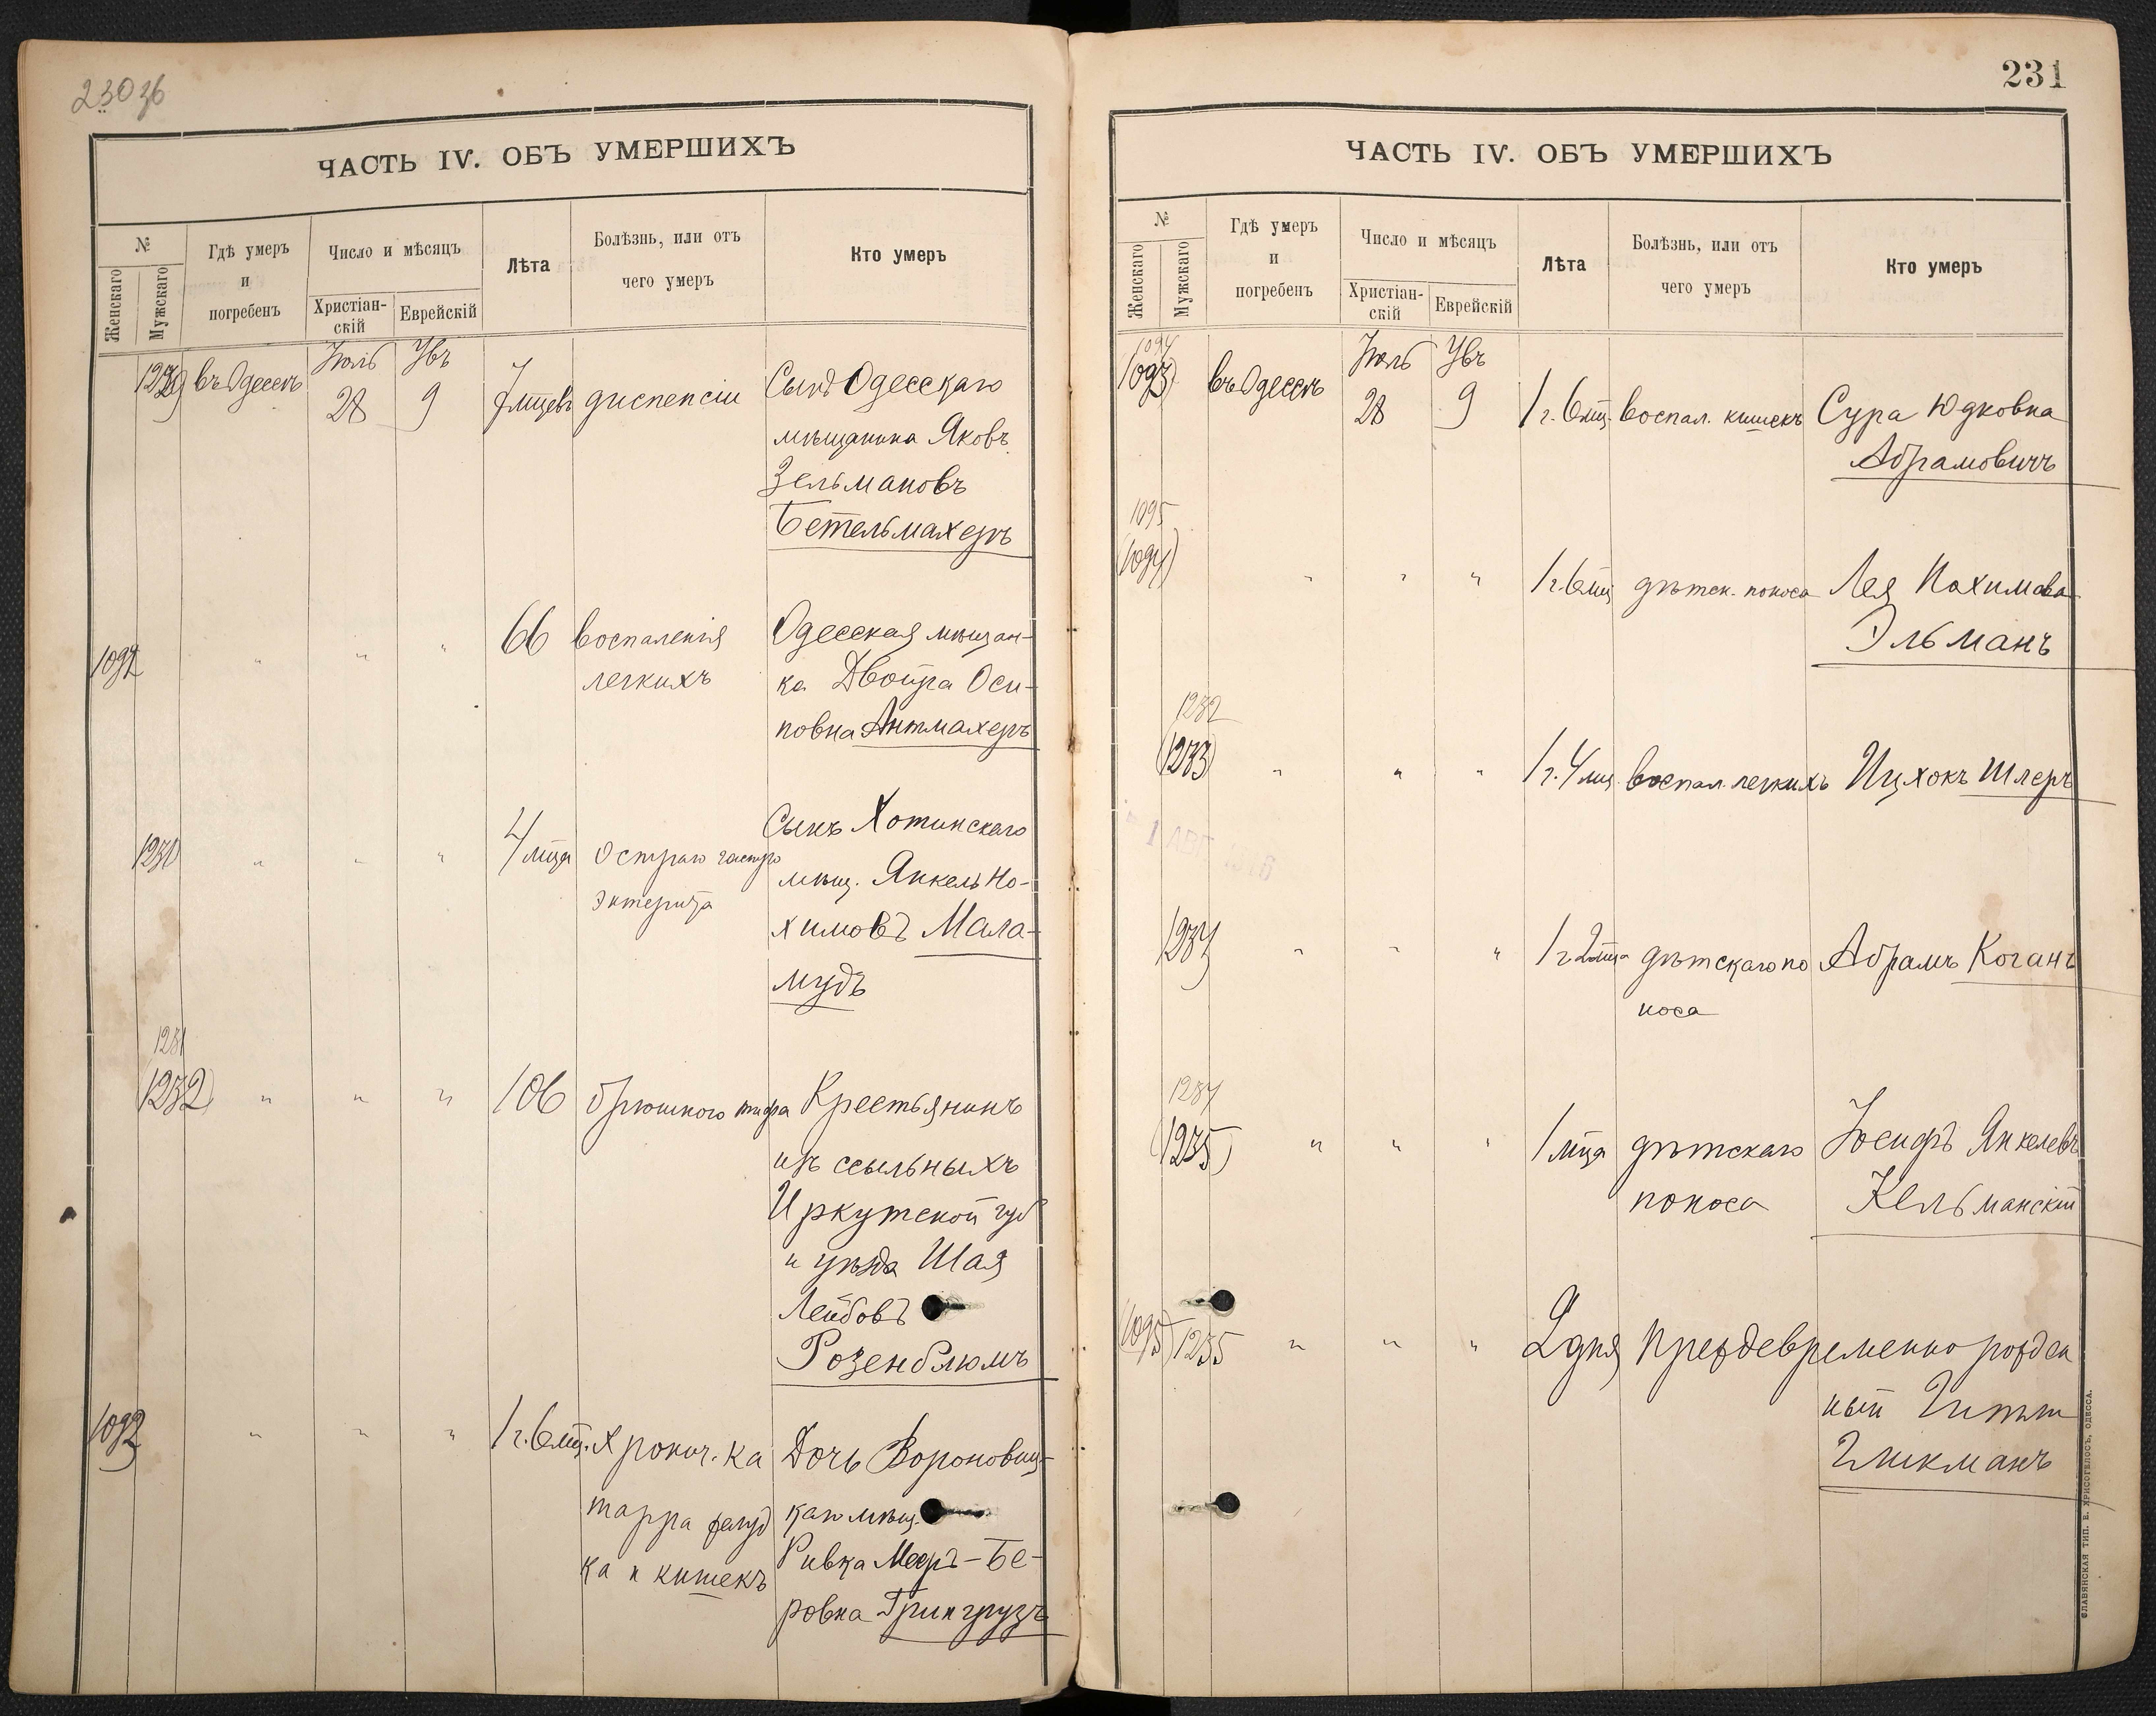 230 об
ЧАСТЬ IV. ОБЪ УМЕРШИХЪ
№
Женскаго
Мужскаго
Гдѣ умеръ
и
погребенъ
Число и мѣсяцъ
Христіан-
скій
Еврейскій
Лѣта
Болѣзнь, или отъ
чего умеръ
Кто умеръ
въ Одессѣ
Іюль
28
Увъ
9
7 мцевъ
диспепсіи
Сынъ Одесскаго
мѣщанина Яковъ
Зельмановъ
Бетельмахеръ
66
воспаленія
легкихъ
Одесская мѣщан-
ка Двойра Оси-
повна Антмахеръ
4 мца
остраго гастро
энтерита
Сынъ Хотинскаго
мѣщ. Янкель Но-
химовъ Мала-
мудъ
1231
1232
" " "
106
брюшного тифа
Крестьянинъ
изъ ссыльныхъ
Иркутской губ
и уѣзда Шая
Лейбовъ
Розенблюмъ
1 г. 6 мц.
Хронич. ка
тарра желуд
ка и кишекъ
Дочь Вороновиц-
каго мѣщ.
Ривка Мееръ-Бе-
ровна Грингрузъ
231
ЧАСТЬ IV. ОБЪ УМЕРШИХЪ
№
Женскаго
Мужскаго
Гдѣ умеръ
и
погребенъ
Число и мѣсяцъ
Христіан-
скій
Еврейскій
Лѣта
Болѣзнь, или отъ
чего умеръ
Кто умеръ
1094
1093
въ Одессѣ
Іюль
28
Увъ
9
1 г. 6 мц.
воспал. кишекъ
Сура Юдковна
Абрамовичъ
1095
(1094)
" " "
1 г. 6 мц
дѣтск. поноса
Лея Нахимова
Эльманъ
1232
(1233)
" " "
1 г. 4 мц.
воспал. легкихъ
Ицхокъ Шлеръ
1234
" " "
1 г 2 мца
дѣтскаго по
носа
Абрамъ Коганъ
1234
(1235)
" " "
1 мца
дѣтскаго
поноса
Іосифъ Янкелевъ
Кельманскій
(1095)
1235
" " "
2 дня
Преждевременно рожден
ный
Гликманъ
СЛАВЯНСКАЯ ТИП. Е. ХРИСОГЕЛОСЪ, ОДЕССА.